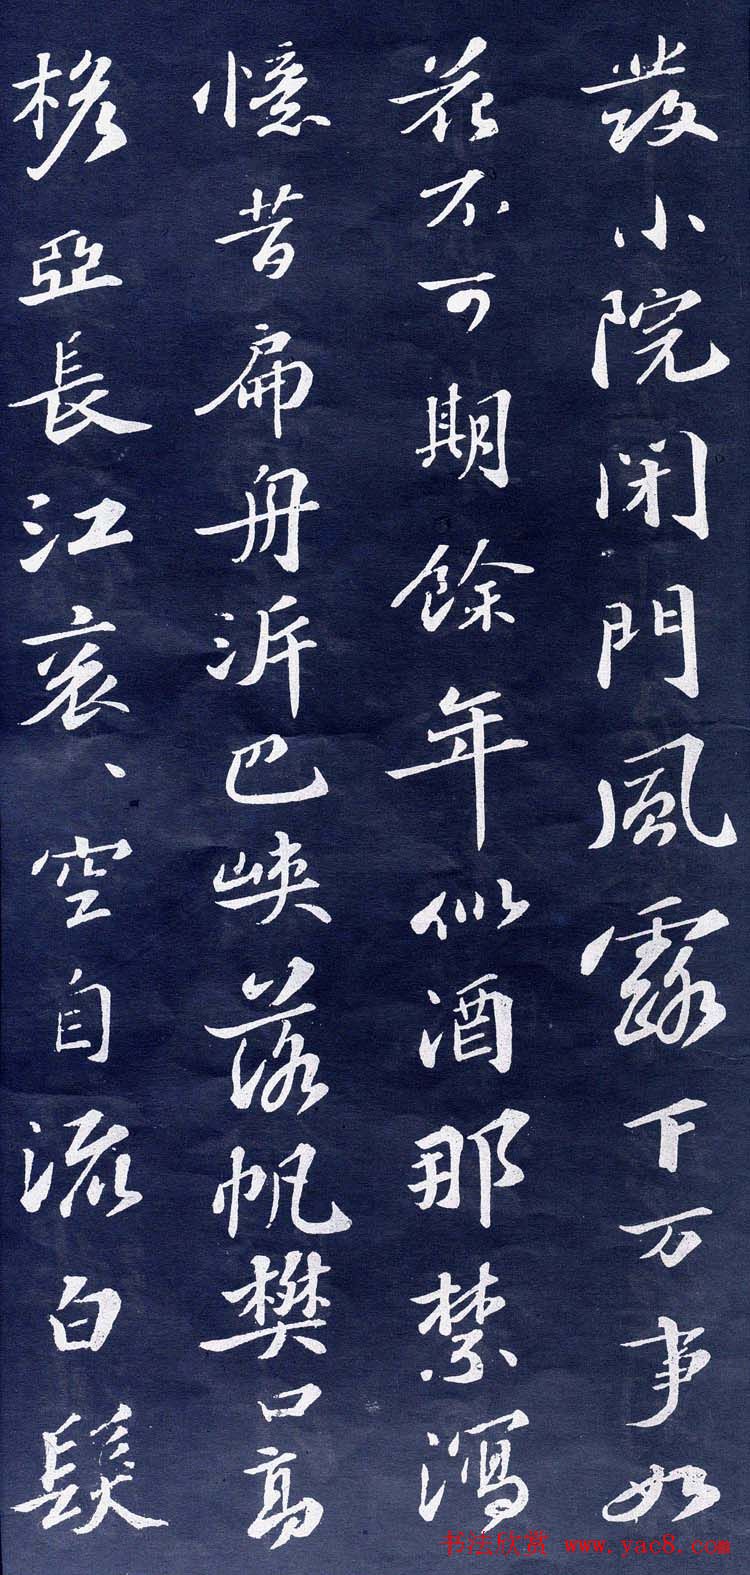 發小院閉門風露下万事如
花不可期餘年似酒那禁瀉
憶昔扁舟泝巴峽落帆樊口高
桅亞長江衮、空自流白髮
书法欣赏 www.yac8.com